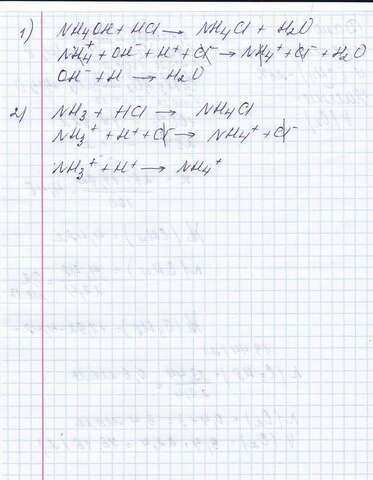 1) NH4OH + HCl → NH4Cl + H2O
NH4+ + OH- + H+ + Cl- → NH4+ + Cl- + H2O
OH- + H → H2O
2) NH3 + HCl → NH4Cl
NH3+ + H+ + Cl- → NH4+ + Cl-
NH3+ + H+ → NH4+